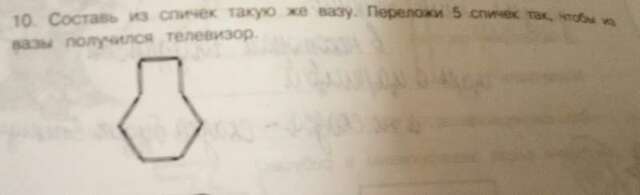 10. Составь из спичек такую же вазу. Переложи 5 спичек так, чтобы из
вазы получился телевизор.